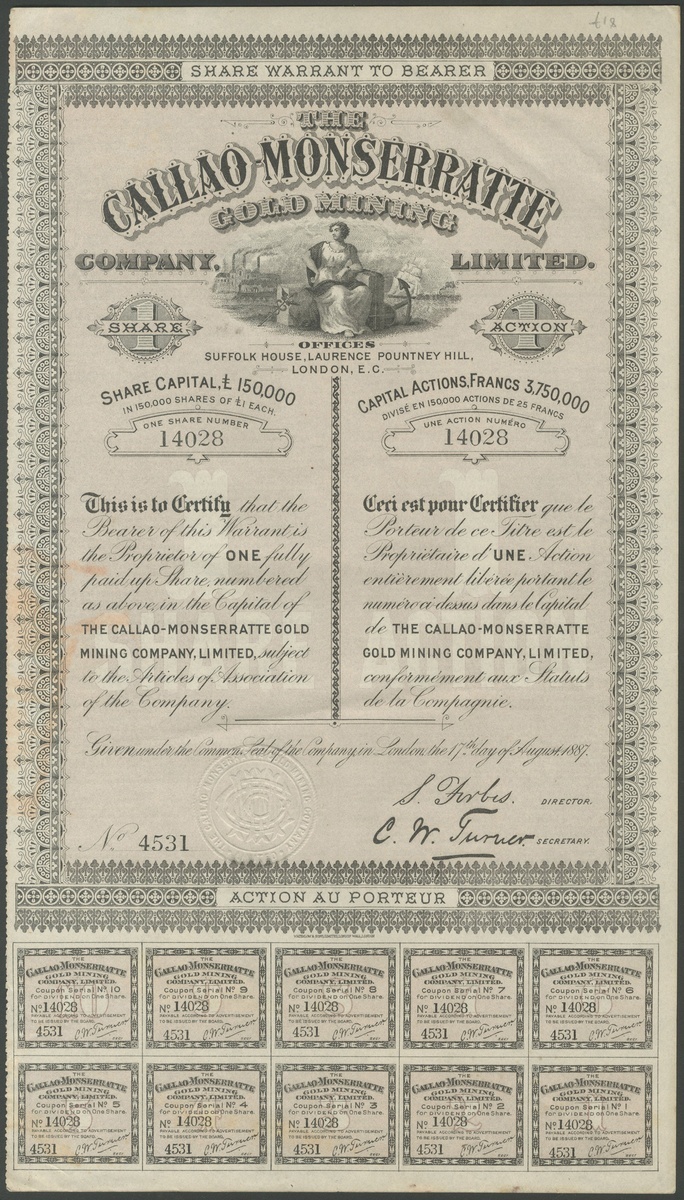 £18
SHARE WARRANT TO BEARER
THE
CALLAO-MONSERRATTE
GOLD MINING
COMPANY, LIMITED.
1 SHARE
1 ACTION
OFFICES
SUFFOLK HOUSE, LAURENCE POUNTNEY HILL,
LONDON, E.C.
SHARE CAPITAL, £ 150,000
IN 150,000 SHARES OF £1 EACH.
ONE SHARE NUMBER
14028
CAPITAL ACTIONS, FRANCS 3,750,000
DIVISÉ EN 150,000 ACTIONS DE 25 FRANCS
UNE ACTION NUMÉRO
14028
This is to Certify that the
Bearer of this Warrant is
the Proprietor of ONE fully
paid up Share, numbered
as above, in the Capital of
THE CALLAO-MONSERRATTE GOLD
MINING COMPANY, LIMITED, subject
to the Articles of Association
of the Company.
Ceci est pour Certifier que le
Porteur de ce Titre est le
Propriétaire d'UNE Action
entièrement libérée portant le
numéro ci dessus dans le Capital
de THE CALLAO-MONSERRATTE
GOLD MINING COMPANY, LIMITED,
conformément aux Statuts
de la Compagnie.
Given under the Common Seal of the Company, in London, the 17th day of August, 1887.
S. Forbes. DIRECTOR.
C. W. Turner SECRETARY.
No 4531
ACTION AU PORTEUR
THE
CALLAO-MONSERRATTE
GOLD MINING
COMPANY, LIMITED.
Coupon Serial No 10
for DIVIDEND on One Share.
No 14028
PAYABLE ACCORDING TO ADVERTISEMENT
TO BE ISSUED BY THE BOARD.
4531 C. W. Turner SECY.
THE
CALLAO-MONSERRATTE
GOLD MINING
COMPANY, LIMITED.
Coupon Serial No 9
for DIVIDEND on One Share.
No 14028
PAYABLE ACCORDING TO ADVERTISEMENT
TO BE ISSUED BY THE BOARD.
4531 C. W. Turner SECY.
THE
CALLAO-MONSERRATTE
GOLD MINING
COMPANY, LIMITED.
Coupon Serial No 8
for DIVIDEND on One Share.
No 14028
PAYABLE ACCORDING TO ADVERTISEMENT
TO BE ISSUED BY THE BOARD.
4531 C. W. Turner SECY.
THE
CALLAO-MONSERRATTE
GOLD MINING
COMPANY, LIMITED.
Coupon Serial No 7
for DIVIDEND on One Share.
No 14028
PAYABLE ACCORDING TO ADVERTISEMENT
TO BE ISSUED BY THE BOARD.
4531 C. W. Turner SECY.
THE
CALLAO-MONSERRATTE
GOLD MINING
COMPANY, LIMITED.
Coupon Serial No 6
for DIVIDEND on One Share.
No 14028
PAYABLE ACCORDING TO ADVERTISEMENT
TO BE ISSUED BY THE BOARD.
4531 C. W. Turner SECY.
THE
CALLAO-MONSERRATTE
GOLD MINING
COMPANY, LIMITED.
Coupon Serial No 5
for DIVIDEND on One Share.
No 14028
PAYABLE ACCORDING TO ADVERTISEMENT
TO BE ISSUED BY THE BOARD.
4531 C. W. Turner SECY.
THE
CALLAO-MONSERRATTE
GOLD MINING
COMPANY, LIMITED.
Coupon Serial No 4
for DIVIDEND on One Share.
No 14028
PAYABLE ACCORDING TO ADVERTISEMENT
TO BE ISSUED BY THE BOARD.
4531 C. W. Turner SECY.
THE
CALLAO-MONSERRATTE
GOLD MINING
COMPANY, LIMITED.
Coupon Serial No 3
for DIVIDEND on One Share.
No 14028
PAYABLE ACCORDING TO ADVERTISEMENT
TO BE ISSUED BY THE BOARD.
4531 C. W. Turner SECY.
THE
CALLAO-MONSERRATTE
GOLD MINING
COMPANY, LIMITED.
Coupon Serial No 2
for DIVIDEND on One Share.
No 14028
PAYABLE ACCORDING TO ADVERTISEMENT
TO BE ISSUED BY THE BOARD.
4531 C. W. Turner SECY.
THE
CALLAO-MONSERRATTE
GOLD MINING
COMPANY, LIMITED.
Coupon Serial No 1
for DIVIDEND on One Share.
No 14028
PAYABLE ACCORDING TO ADVERTISEMENT
TO BE ISSUED BY THE BOARD.
4531 C. W. Turner SECY.